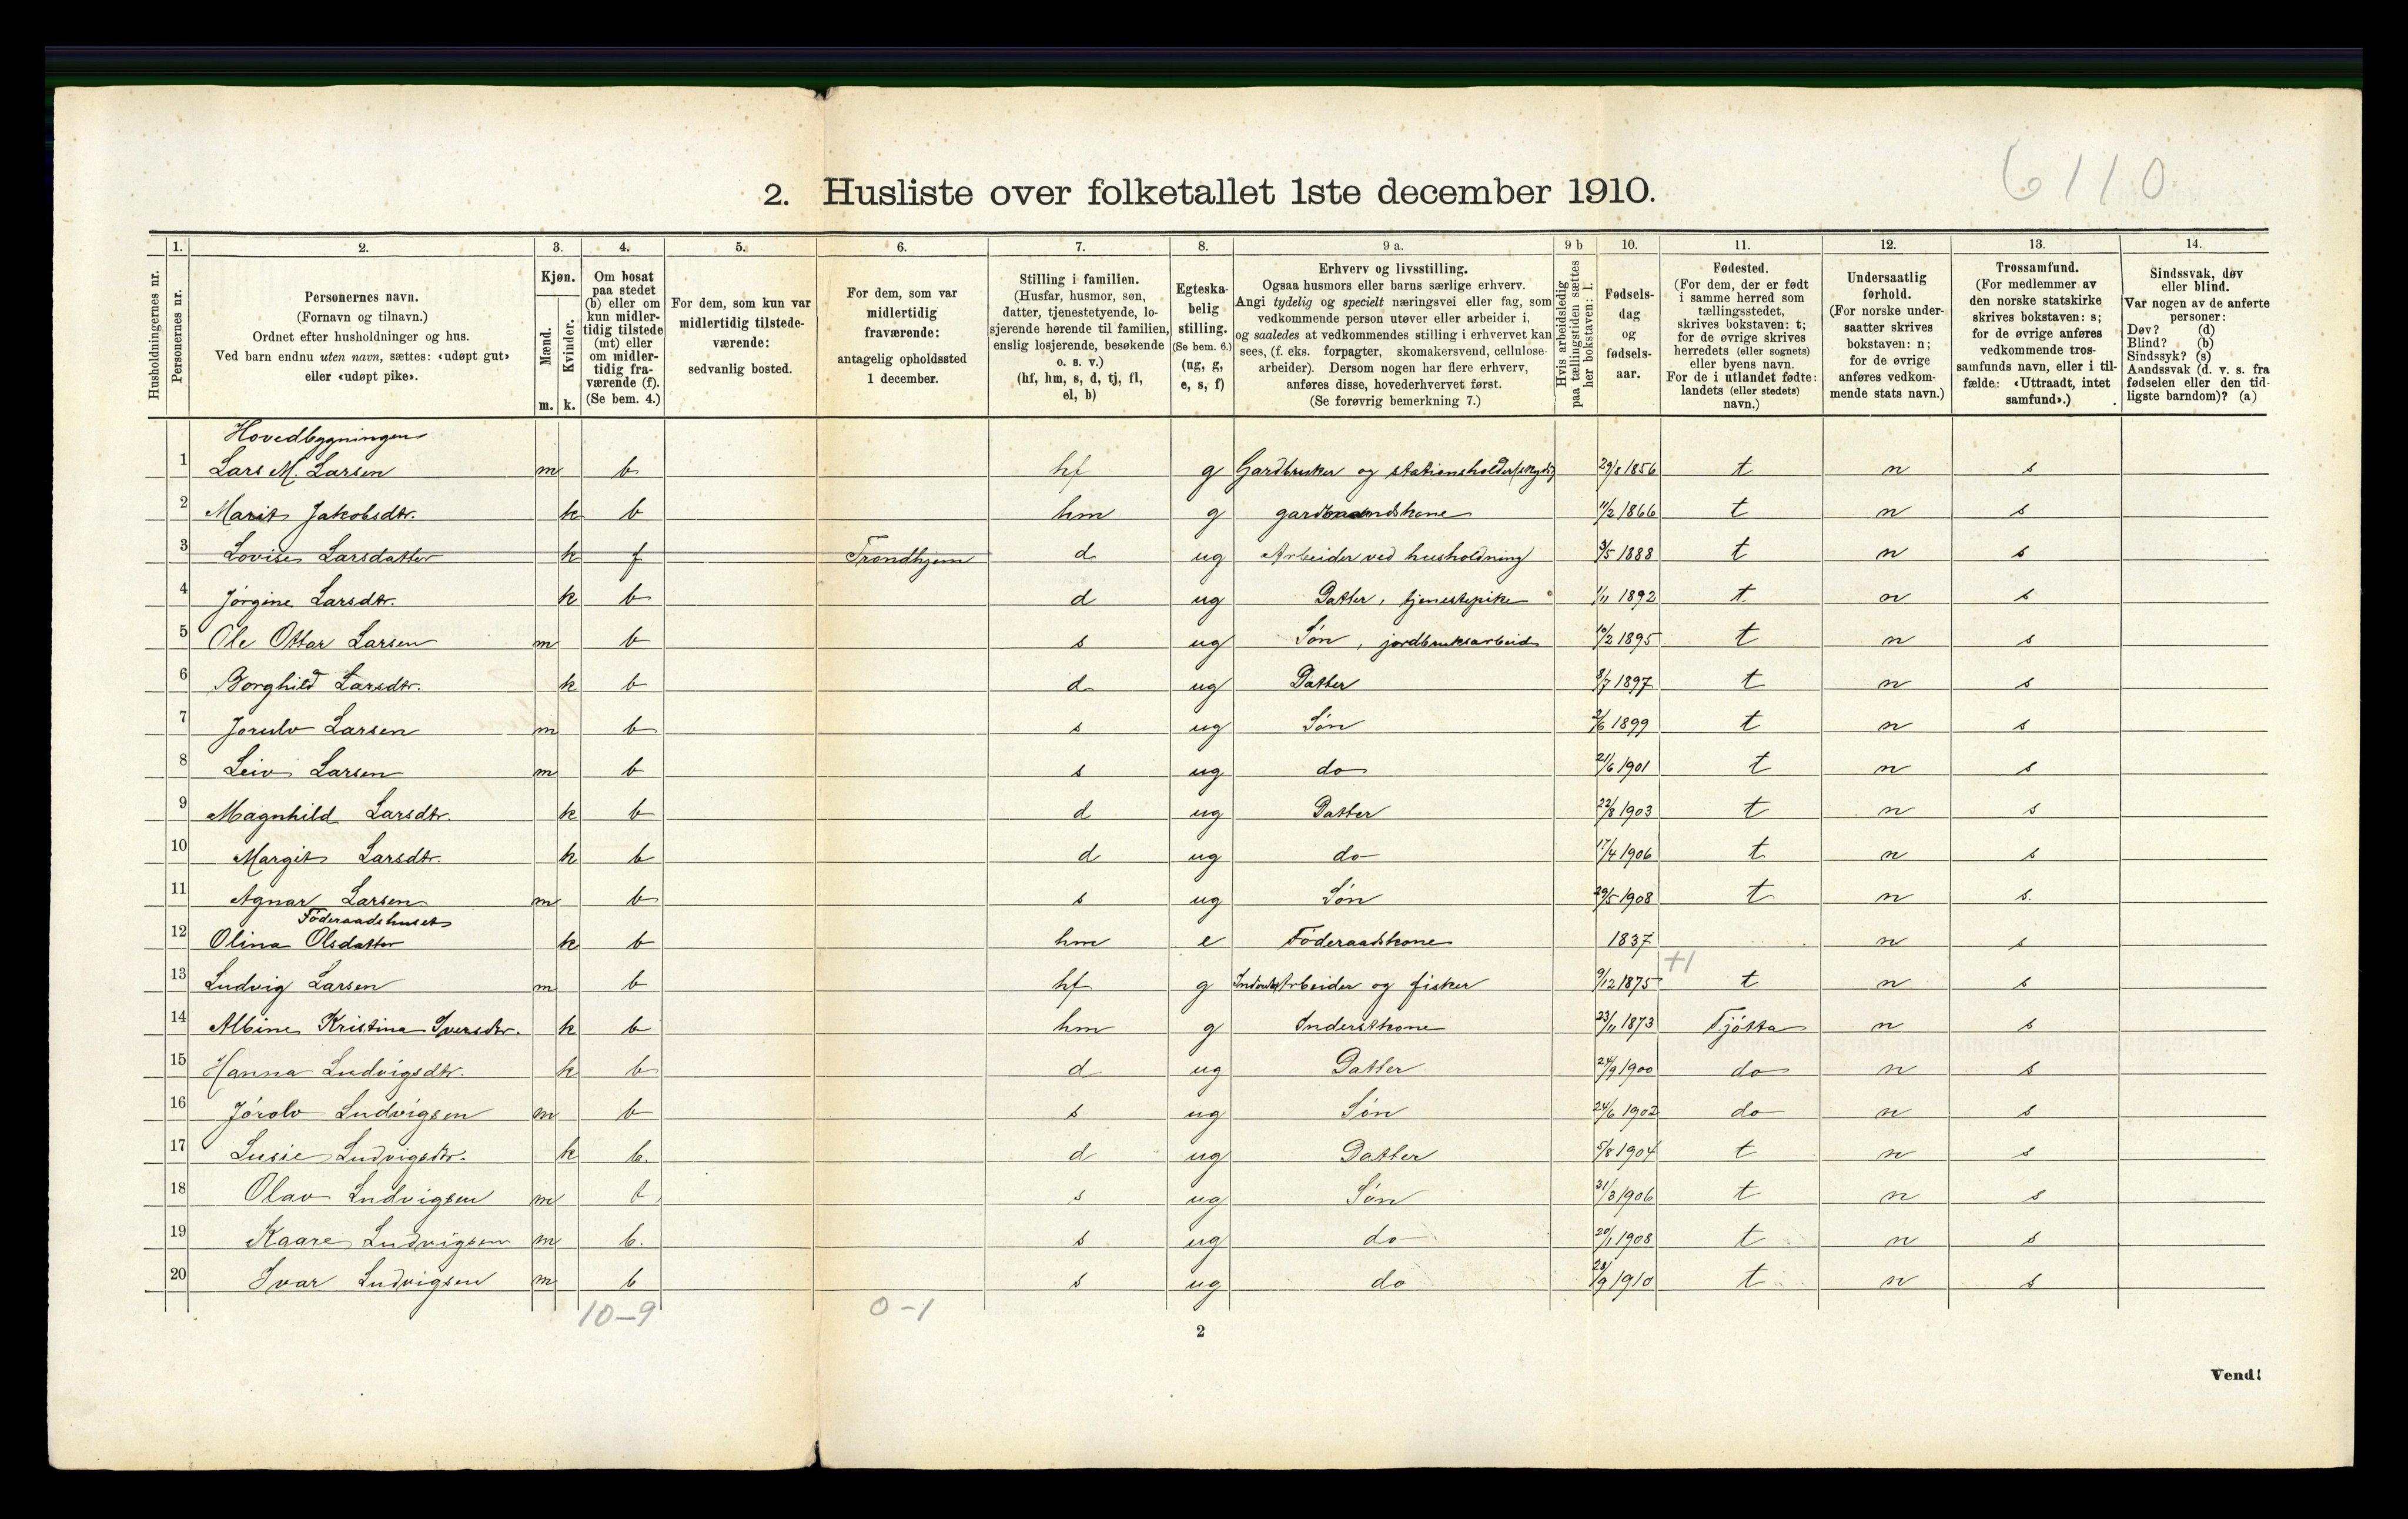 6110
2. Husliste over folketallet 1ste december 1910.
Husholdningernes nr.
1.
Personernes nr.
2.
Personernes navn.
(Fornavn og tilnavn.)
Ordnet efter husholdninger og hus.
Ved barn endnu uten navn, sættes: «udøpt gut»
eller «udøpt pike».
3.
Kjøn.
Mænd.
Kvinder.
m. k.
4.
Om bosat
paa stedet
(b) eller om
kun midler-
tidig tilstede
(mt) eller
om midler-
tidig fra-
værende (f).
(Se bem. 4.)
5.
For dem, som kun var
midlertidig tilstede-
værende:
sedvanlig bosted.
6.
For dem, som var
midlertidig
fraværende:
antagelig opholdssted
1 december.
7.
Stilling i familien.
(Husfar, husmor, søn,
datter, tjenestetyende, lo-
sjerende hørende til familien,
enslig losjerende, besøkende
o. s. v.)
(hf, hm, s, d, tj, fl,
el, b)
8.
Egteska-
belig
stilling.
(Se bem. 6.)
(ug, g,
e, s, f)
9 a.
Erhverv og livsstilling.
Ogsaa husmors eller barns særlige erhverv.
Angi tydelig og specielt næringsvei eller fag, som
vedkommende person utøver eller arbeider i,
og saaledes at vedkommendes stilling i erhvervet kan
sees, (f. eks. forpagter, skomakersvend, cellulose-
arbeider). Dersom nogen har flere erhverv,
anføres disse, hovederhvervet først.
(Se forøvrig bemerkning 7.)
9 b
Hvis arbeidsledig
paa tællingstiden sættes
her bokstaven: l.
10.
Fødsels-
dag
og
fødsels-
aar.
11.
Fødested.
(For dem, der er født
i samme herred som
tællingsstedet,
skrives bokstaven: t;
for de øvrige skrives
herredets (eller sognets)
eller byens navn.
For de i utlandet fødte:
landets (eller stedets)
navn.)
12.
Undersaatlig
forhold.
(For norske under-
saatter skrives
bokstaven: n;
for de øvrige
anføres vedkom-
mende stats navn.)
13.
Trossamfund.
(For medlemmer av
den norske statskirke
skrives bokstaven: s;
for de øvrige anføres
vedkommende tros-
samfunds navn, eller i til-
fælde: «Uttraadt, intet
samfund».)
14.
Sindssvak, døv
eller blind.
Var nogen av de anførte
personer:
Døv? (d)
Blind? (b)
Sindssyk? (s)
Aandssvak (d. v. s. fra
fødselen eller den tid-
ligste barndom)? (a)
Hovedbygningen
1 Lars M. Larsen m b hf g Gardbruker og stationsholder (skyds) 29/8 1856 t n s
2 Marit Jakobsdtr. k b hm g gardmandskone 11/2 1866 t n s
3 Lovise Larsdatter k f Trondhjem d ug Arbeider ved husholdning 3/5 1888 t n s
4 Jørgine Larsdtr. k b d ug Datter, tjenestepike 1/11 1892 t n s
5 Ole Ottar Larsen m b s ug Søn, jordbruksarbeid 10/2 1895 t n s
6 Borghild Larsdtr. k b d ug Datter 8/7 1897 t n s
7 Jorulv Larsen m b s ug Søn 2/6 1899 t n s
8 Leiv Larsen m b s ug do 21/6 1901 t n s
9 Magnhild Larsdtr. k b d ug Datter 22/8 1903 t n s
10 Margit Larsdtr. k b d ug do 17/4 1906 t n s
11 Agnar Larsen m b s ug Søn 29/5 1908 t n s.
Föderaadshuset
12 Olina Olsdatter k b hm e Föderaadskone 1837 n s
+1
13 Ludvig Larsen m b hf g Inderst Arbeider og fisker 9/12 1875 t n s
14 Albine Kristina Iversdtr. k b hm g Inderstkone 23/11 1873 Tjötta n s
15 Hanna Ludvigsdtr. k b d ug Datter 24/9 1900 do n s
16 Jórolv Ludvigsen m b s ug Søn 24/6 1902 do n s
17 Lusie Ludvigsdtr. k b. d ug Datter 5/8 1904 t n s
18 Olav Ludvigsen m b s ug Søn 31/3 1906 t n s
19 Kaare Ludvigsen m b. s ug do 20/1 1908 t n s
20 Ivar Ludvigsen m b s ug do 28/9 1910 t n s
10-9 0-1
2
Vend!